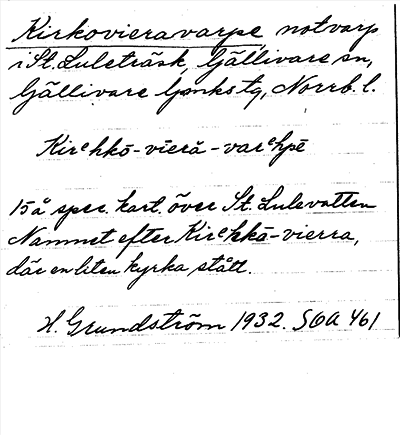 Kirkovieravarpe notvarp
i St. Luleträsk, Gällivare sn,
Gällivare lpmks tg, Norrb. l.
Kirᵉhkō-vierā-varᵉhpē
15 å spec. kart. över St. Lulevatten
Namnet efter Kirᵉhkā-vierra,
där en liten kyrka stått.
H. Grundström 1932. SOA 461